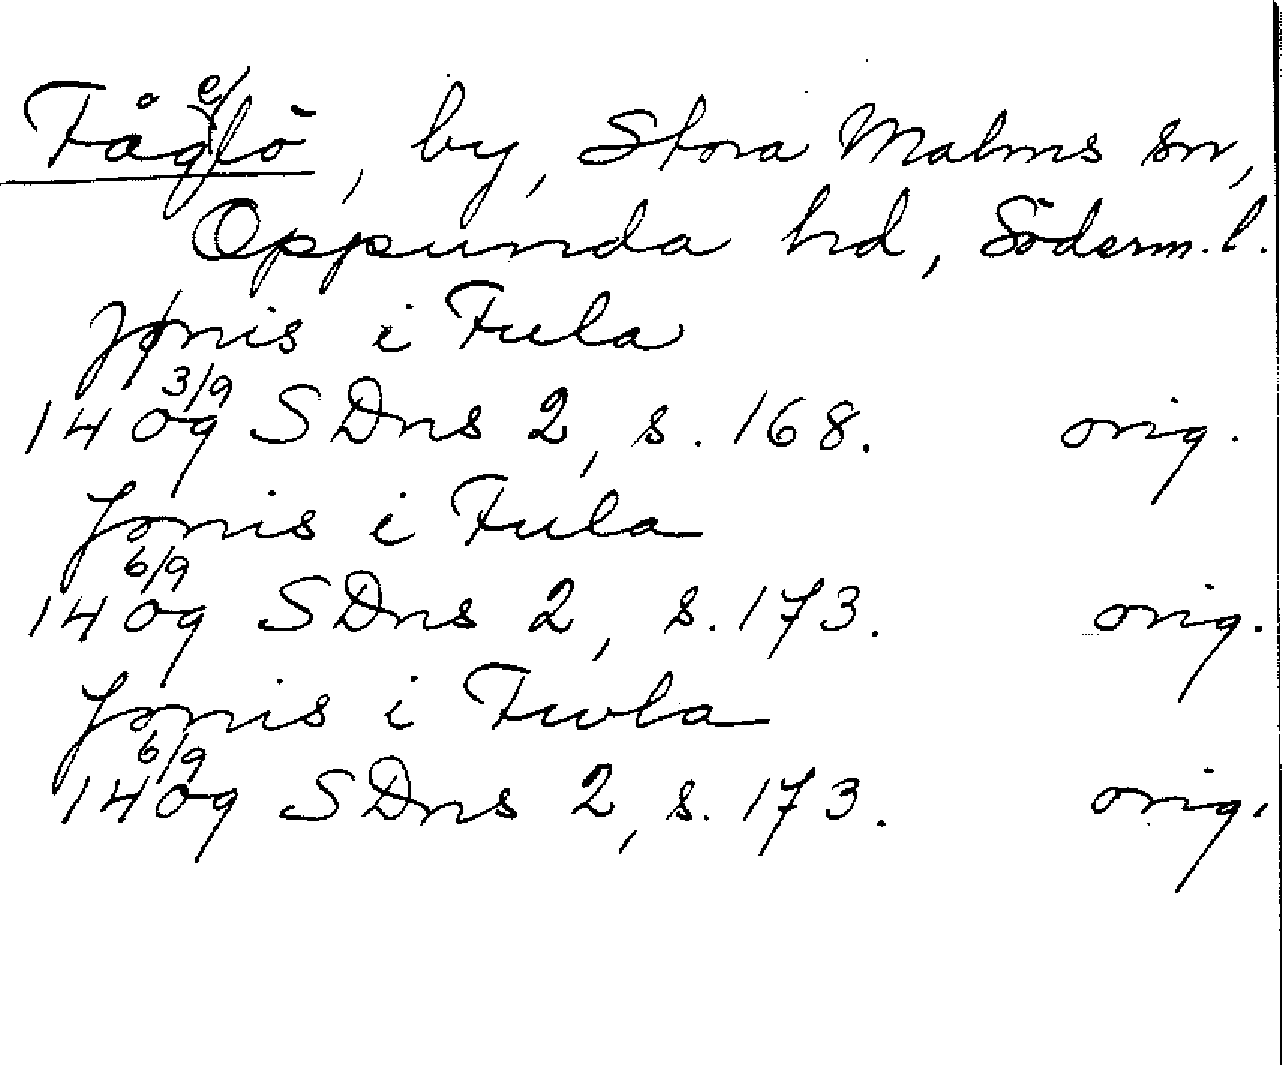 Fågelö, by, Stora Malms sn,
Oppunda hd, Söderm. l.
Jønis i Fula
1409 3/9 SDns 2, s. 168. orig.
Jonis i Fula
1409 6/9 SDns 2, s. 173. orig.
Jonis i Fwla
1409 6/9 SDns 2, s. 173. orig.